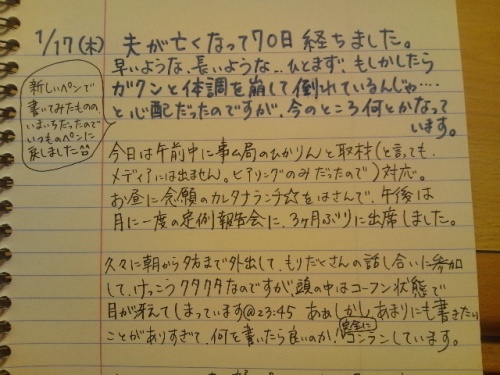 1/17(木) 夫が亡くなって70日経ちました。
早いような、長いような…ひとまず、もしかしたら
ガクンと体調を崩して倒れているんじゃ‥‥
と心配だったのですが、今のところ何とかなって
います。
新しいペンで
書いてみたものの
いまいちだったので
いつものペンに
戻しました笑
今日は午前中に事ム局のひかりんと取材(と言っても、
メディアには出ません。ヒアリングのみだったので)対応。
お昼に念願のカレタナランチ☆をはさんで、午後は
月に一度の定例報告会に、3ヶ月ぶりに出席しました。
久々に朝から夕方まで外出して、もりだくさんの話し合いに参加
して、けっこうクタクタなのですが、頭の中はコーフン状態で
目が冴えてしまっています@23:45 ああしかし、あまりにも書きたい
ことがありすぎて、何を書いたら良いのか、完全にコンランしています。